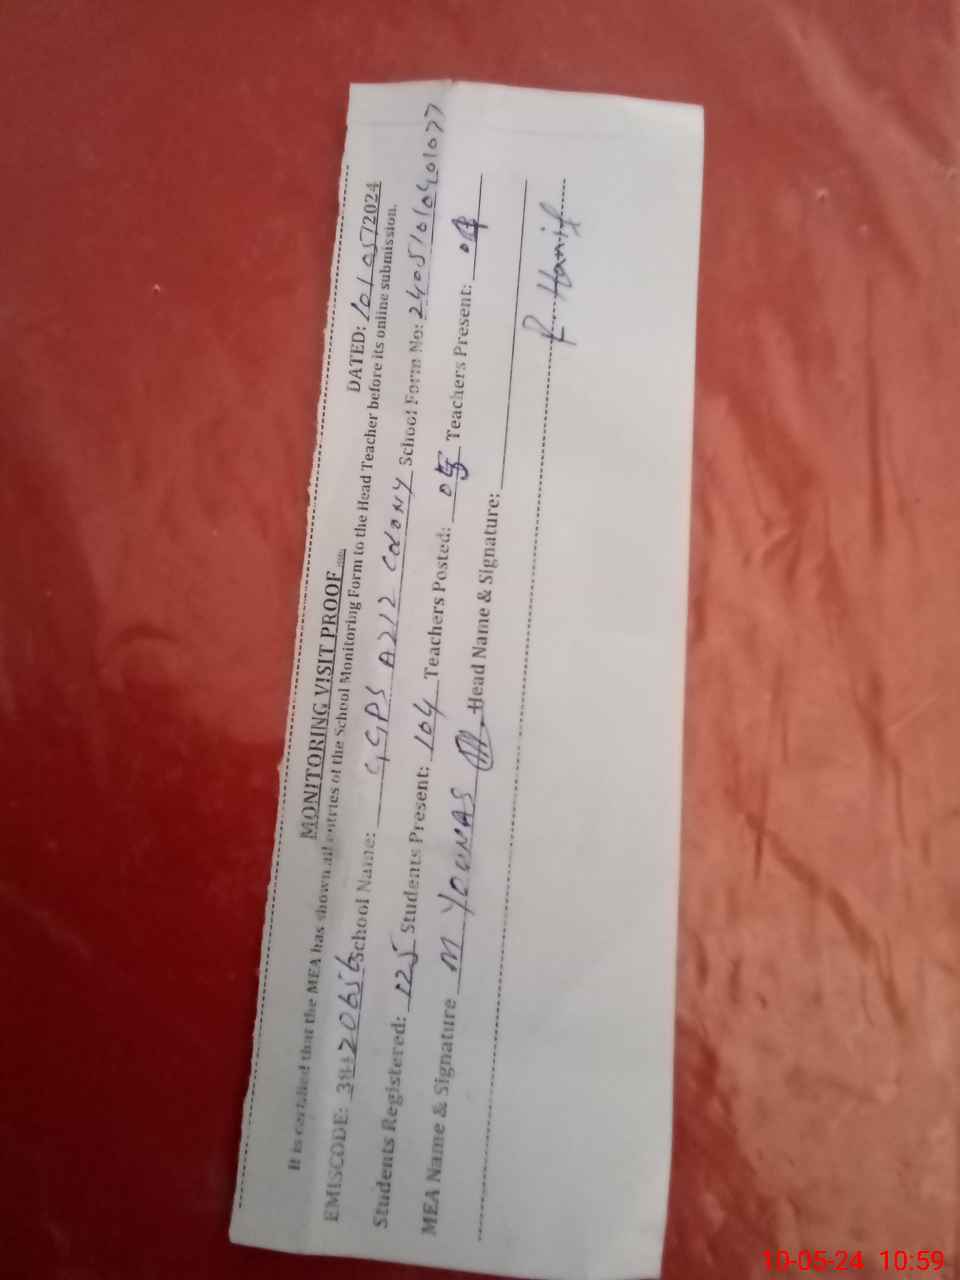 MONITORING VISIT PROOF
DATED: 10/05/2024
It is certified that the MEA has shown all entries of the School Monitoring Form to the Head Teacher before its online submission.
EMISCODE: 20656 School Name: GGPS A212 COLONY School Form No: 24051010401077
Students Registered: 125 Students Present: 104 Teachers Posted: 05 Teachers Present:
MEA Name & Signature M YOUNAS Head Name & Signature:
Hanif
10-05-24 10:59